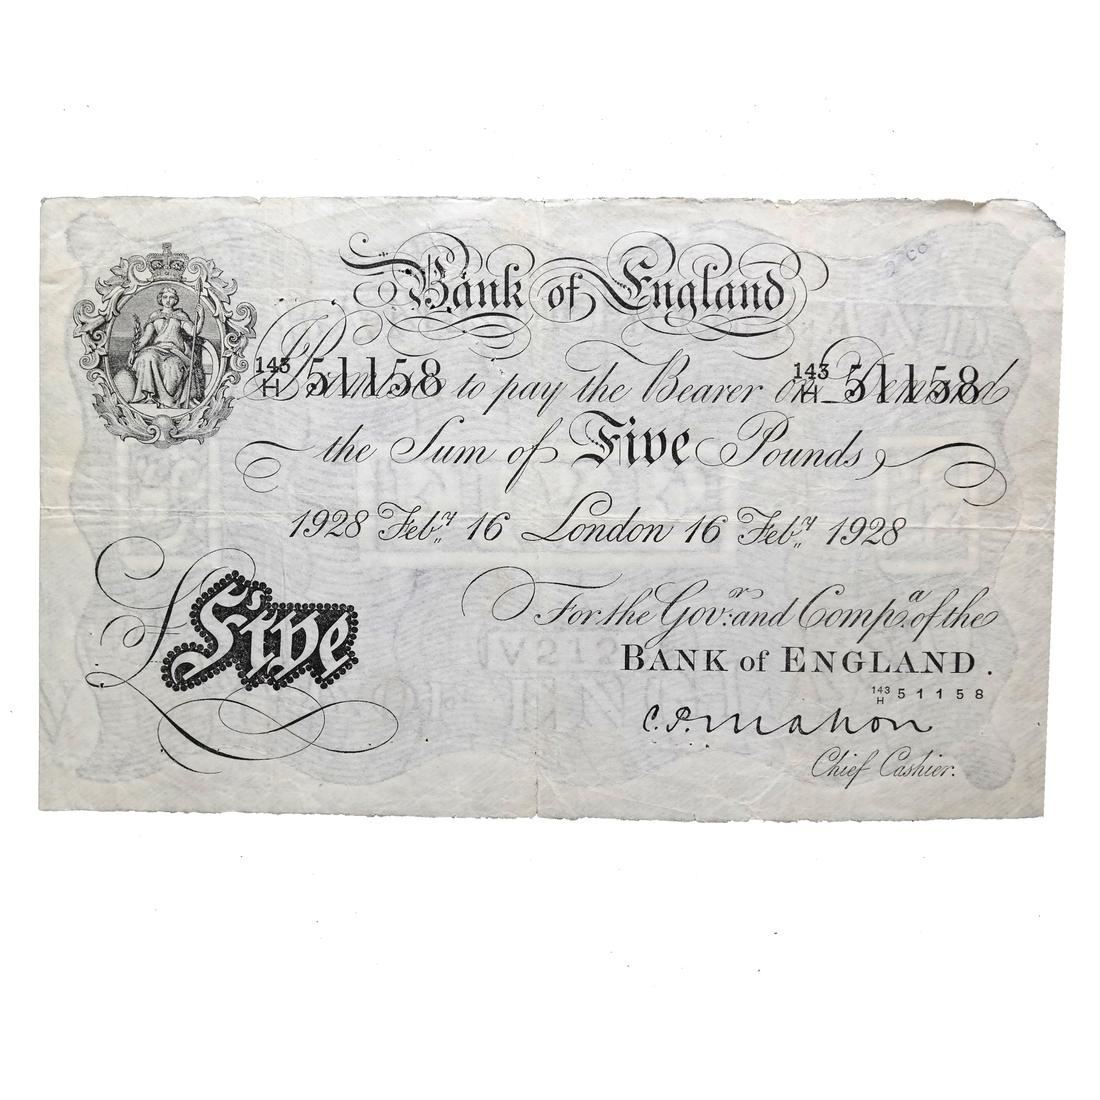 Bank of England
143/H 51158 I Promise to pay the Bearer on Demand 143/H 51158
the Sum of Five Pounds
1928 Feb.y 16 London 16 Feb.y 1928
For the Gov.r and Comp.a of the
£Five
BANK of ENGLAND.
143/H 51158
C.P. Mahon
Chief Cashier.